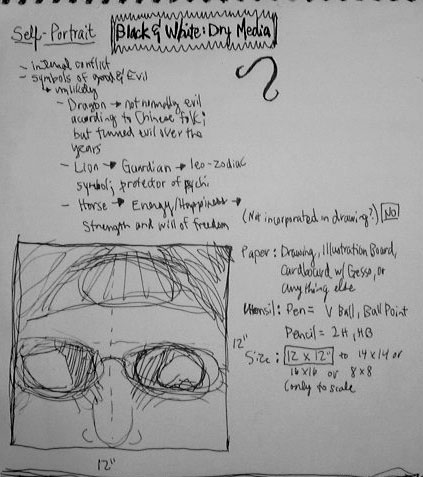 Self-Portrait
Black & White: Dry Media
- internal conflict
- symbols of good & Evil
↳ unlikely
- Dragon → not normally evil
according to Chinese folk;
but turned evil over the
years
- Lion → Guardian → leo-zodiac
symbol; protector of psychi
- Horse → Energy/Happiness →
Strength and will of freedom
(Not incorporated in drawing?) NO
Paper: Drawing, Illustration Board,
Cardboard w/ Gesso, or
anything else
Utensil: Pen = V Ball, Ball Point
Pencil = 2H, HB
Size: 12 x 12" to 14 x 14 or
16 x 16 or 8 x 8
(only to scale
12"
12"